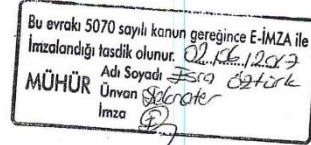 Bu evrakı 5070 sayılı kanun gereğince E-İMZA ile
İmzalandığı tasdik olunur. 02.06.2017
Adı Soyadı Esra Öztürk
MÜHÜR Ünvan
İmza